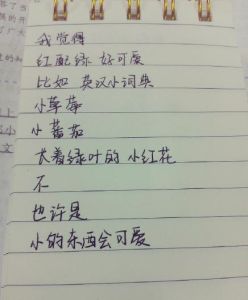 我觉得
红配绿 好可爱
比如 英汉小词典
小草莓
小蕃茄
长着绿叶的 小红花
不
也许是
小的东西会可爱